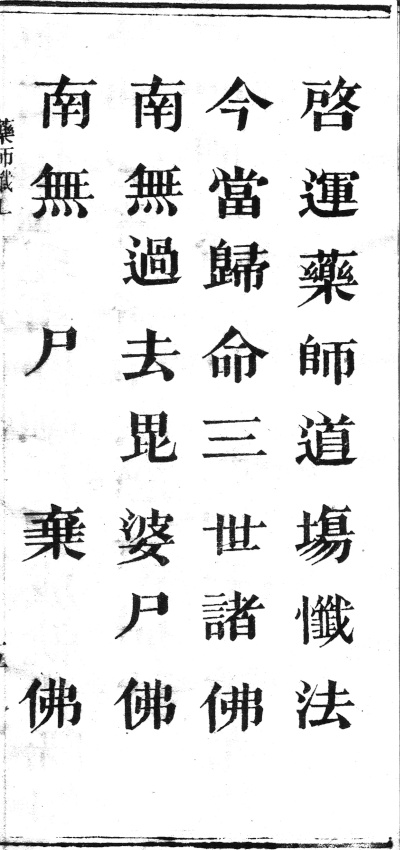 啓運藥師道場懺法
今當歸命三世諸佛
南無過去毘婆尸佛
南無尸棄佛
藥師懺